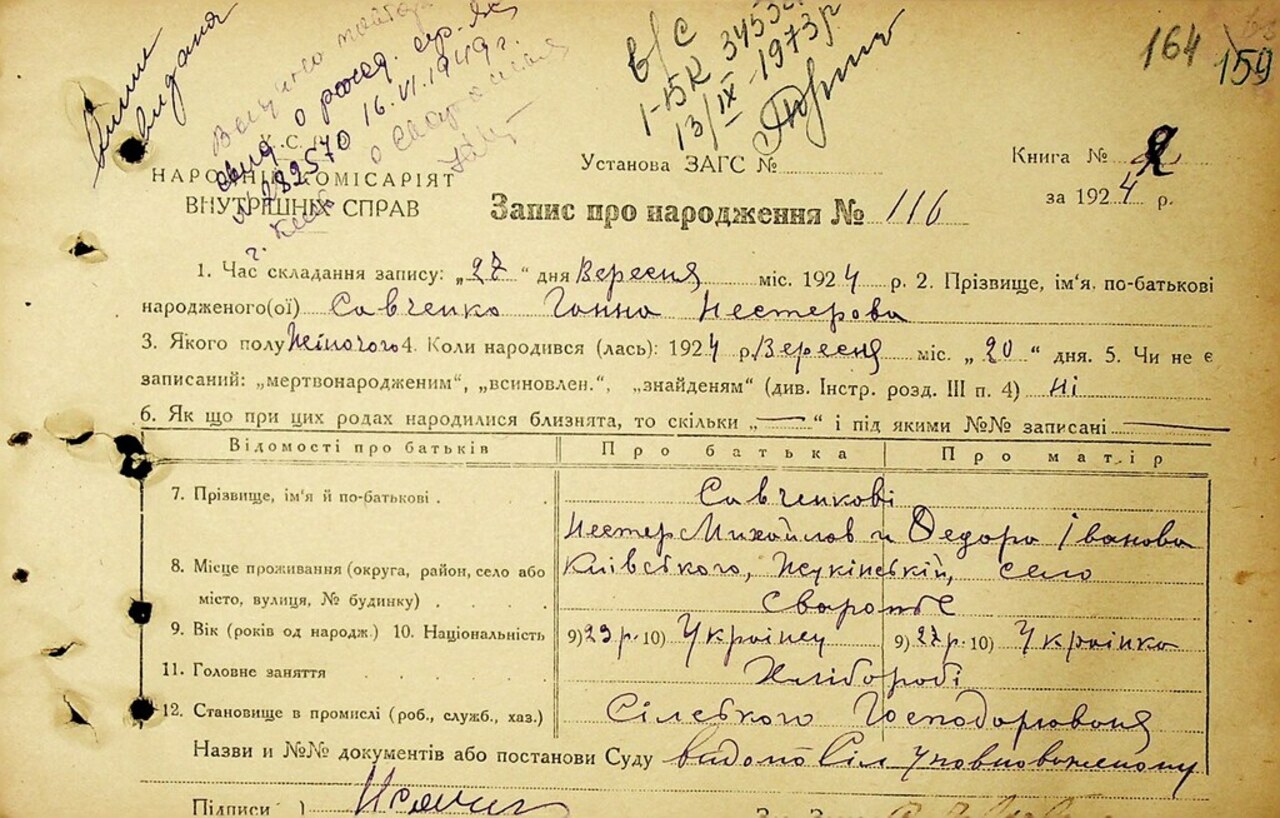 164 159
Випис видана
о рожд.
№ 282570 16.VI.1949 г.
в/с
13/IX-1973р
У.С.Р.Р.
НАРОДНІЙ КОМІСАРІЯТ
ВНУТРІШНІХ СПРАВ
Установа ЗАГС №
Книга № 2
за 1924 р.
Запис про народження № 116
1. Час складання запису: „27“ дня Вересня міс. 1924 р. 2. Прізвище, ім'я, по-батькові
народженого(ої) Савченко Ганна Нестерова
3. Якого полу Жіночого 4. Коли народився (лась): 1924 р. Вересня міс. „20“ дня. 5. Чи не є
записаний: „мертвонародженим“, „всиновлен.“, „знайденям“ (див. Інстр. розд. III п. 4) ні
6. Як що при цих родах народилися близнята, то скільки „—“ і під якими №№ записані —
Відомості про батьків Про батька Про матір
7. Прізвище, ім'я й по-батькові . Савченкові
Нестер Михайлов и Федора Іванова
8. Місце проживання (округа, район, село або Київського, село
місто, вулиця, № будинку) . . . . Сваромьє
9. Вік (років од народж.) 10. Національність 9) 29 р. 10) Українец 9) 27 р. 10) Українка
11. Головне заняття . . . . . Хлібороби
12. Становище в промислі (роб., служб., хаз.) Сільского Господарювання
Назви и №№ документів або постанови Суду
Підписи